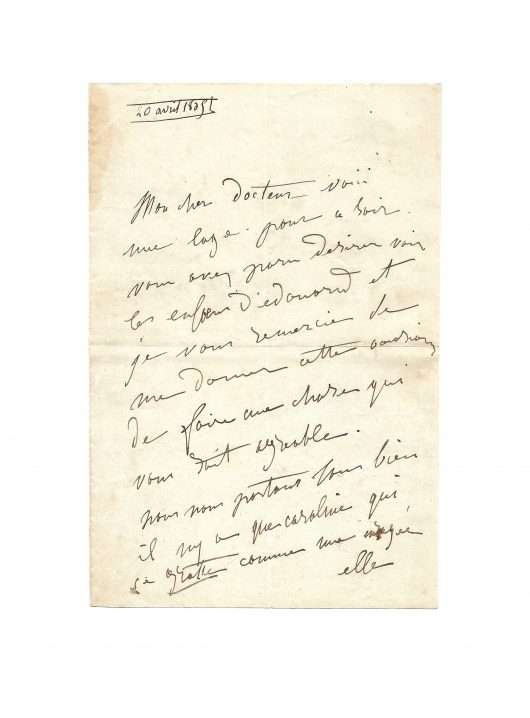 20 avril 1825
Mon cher docteur voici
une loge pour ce soir.
vous avez paru desirer voir
les enfans d'edouard et
je vous remercie de
me donner cette occasion
de faire une chose qui
vous soit agreable.
nous nous portons tous bien
il n'y a que caroline qui
se gratte comme une
elle